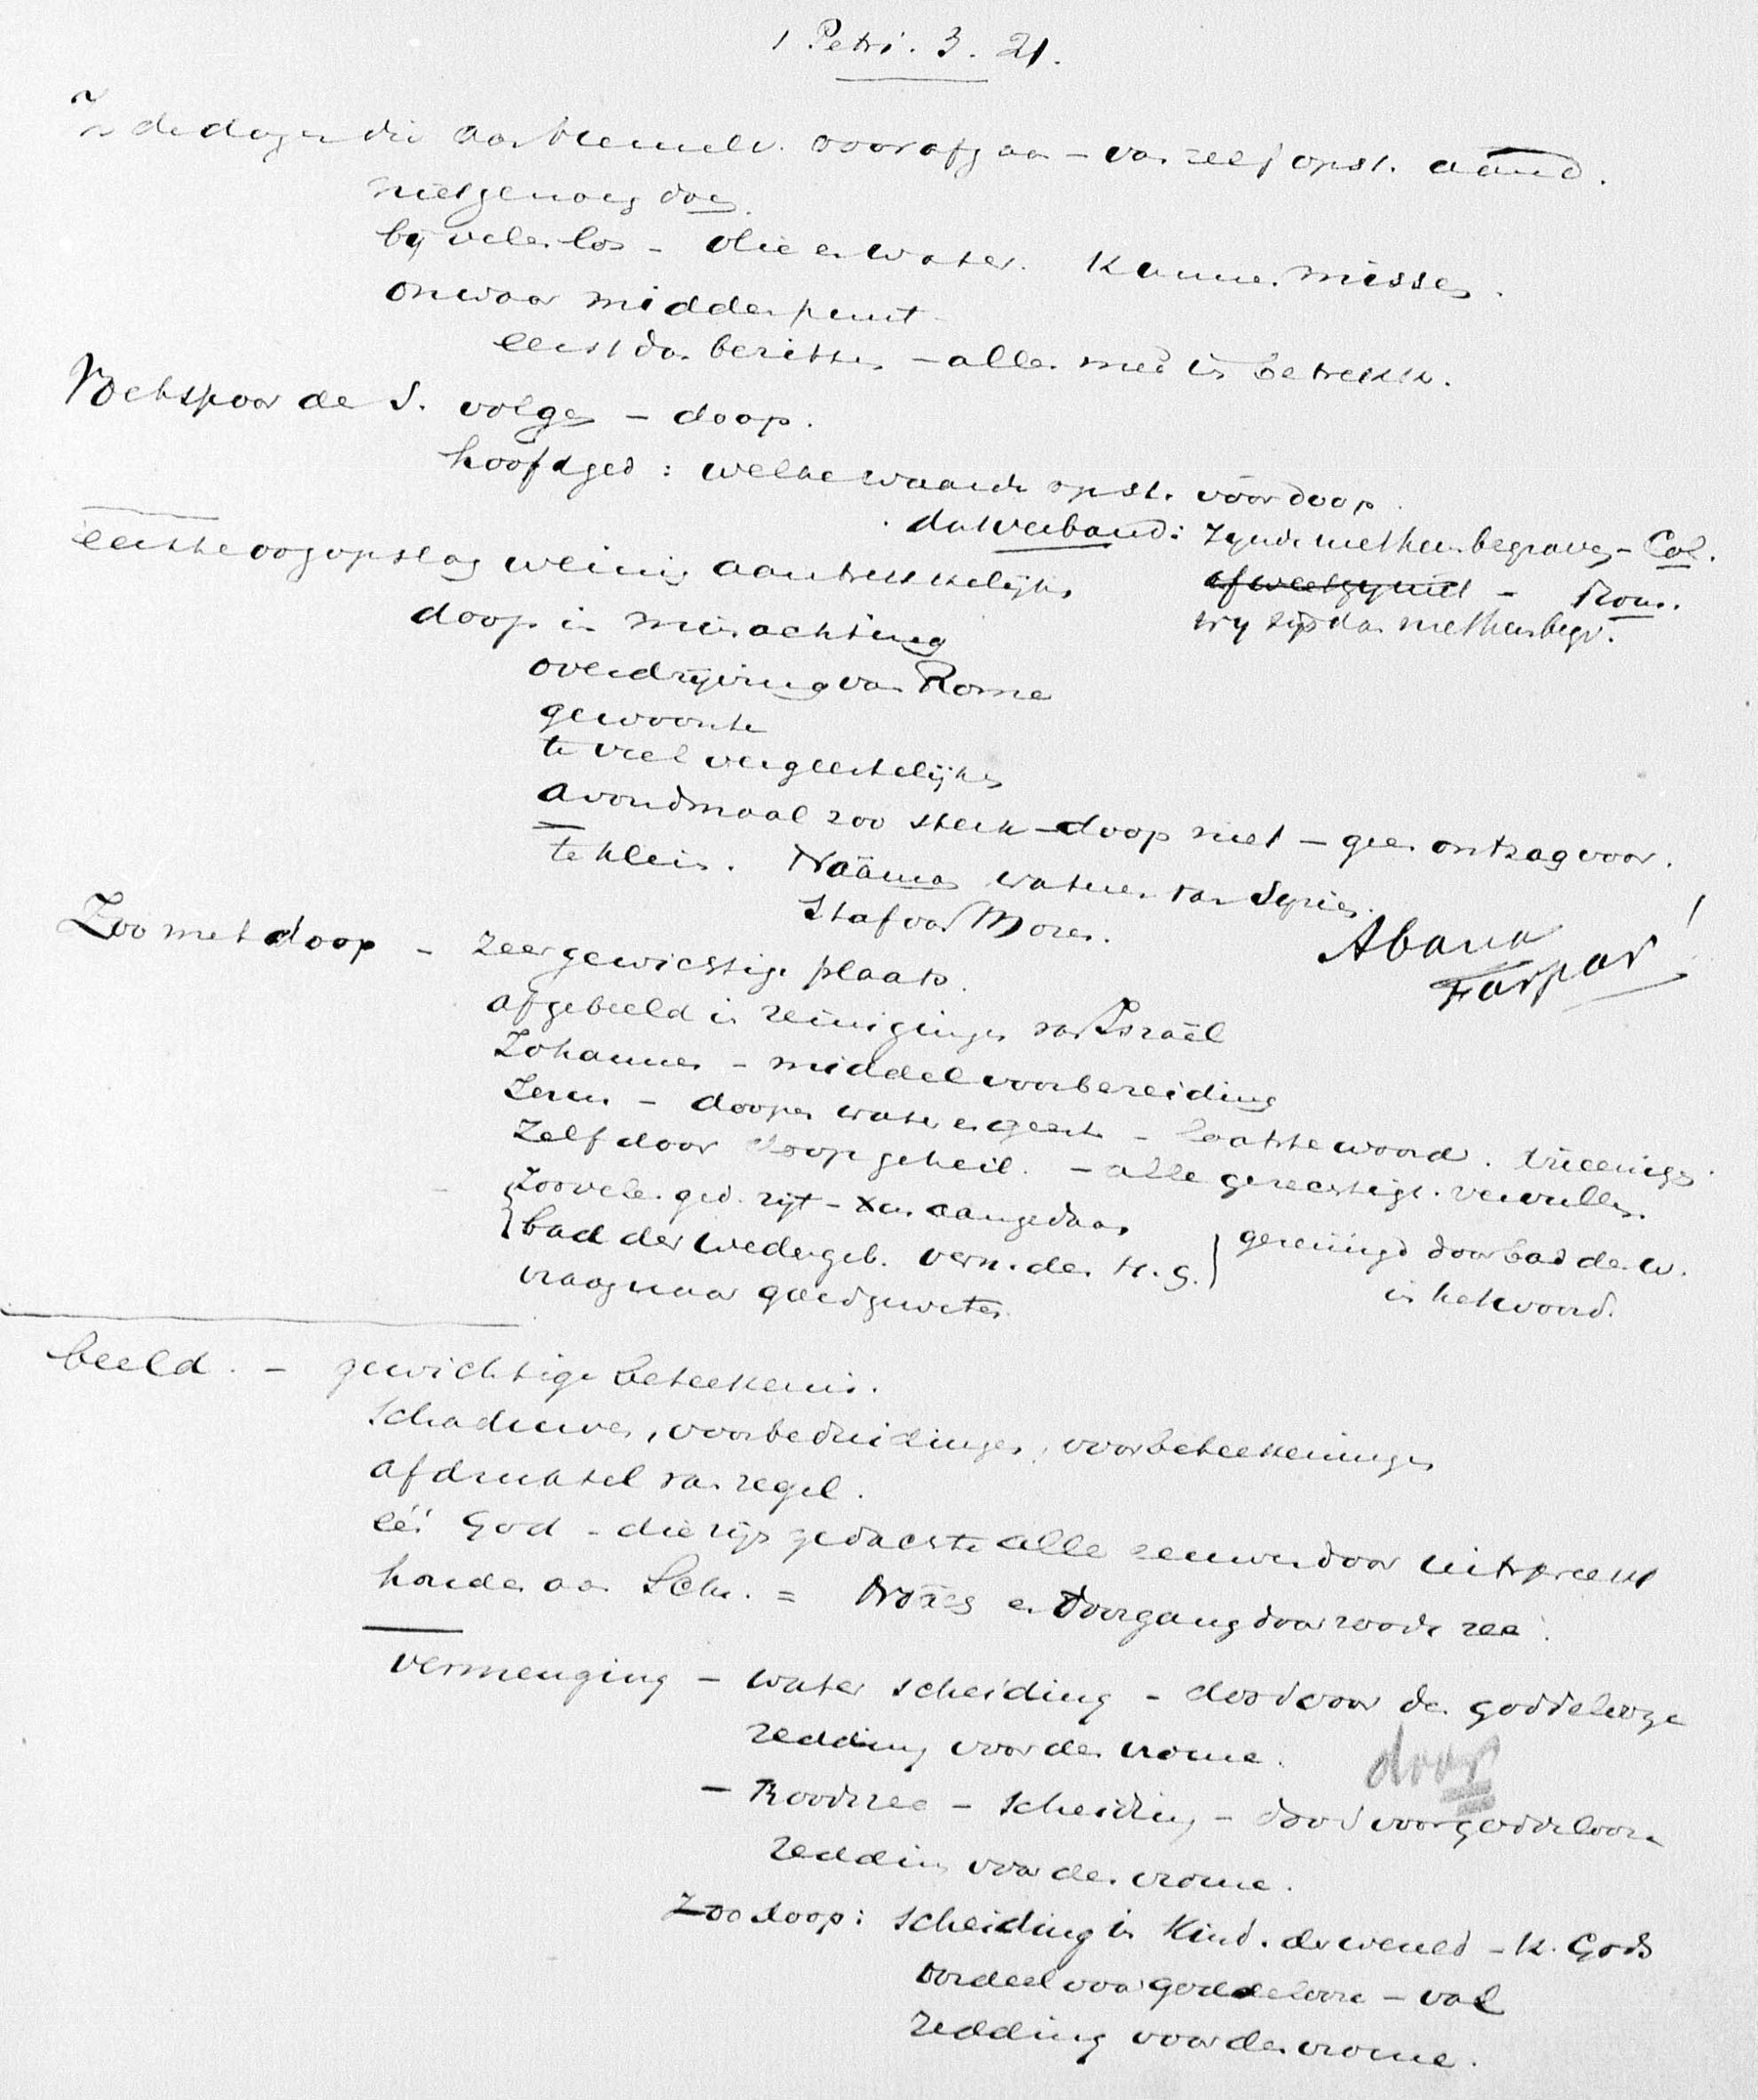 1 Petri. 3. 21.
In de dagen die aan hemelv. voorafgaan – van zelf opst. aand.
niet genoeg doen.
bij velen los – olie en water. Kunnen missen.
onwaar middenpunt –
eerst dan bezitten – allen mee in betrekk.
Voetspoor de S. volgen – doop.
hoofdged: welke waarde opst. voor doop.
dat verband: Zijnde met hem begraven – Col.
of weet gij niet – Rom.
wij zijn dan met hem begr.
eerste oogopslag weinig aantrekkelijks
doop in minachting
overdrijving van Rome
gewoonte
te veel vergeestelijken
avondmaal zoo sterk – doop niet – geen ontzag voor.
te klein. Naäman wateren van Syrien.
Staf van Mozes.
Abana
Farpar!
Zoo met doop – zeer gewichtige plaats.
afgebeeld in reinigingen van Israël
Johannes – middel voorbereiding
Jezus – doopen water en geest – laatste woord. drieenige
Zelf door doop geheil. – alle gerechtigh. vervullen.
Zoovelen ged. zijt – Xen aangedaan
bad der wedergeb. vern. des H. G.
gereinigd door bad de. w.
in het woord.
vraag naar goed geweten
beeld. – gewichtige beteekenis.
Schaduwen, voorbeduidingen, voorbeteekeningen
afdruksel van zegel.
één God – die zijn gedachte alle eeuwen door uitspreekt
houden aan Schr. = Noach en doorgang door roode zee.
vermenging – water scheiding – dood voor de goddelooze
redding voor de vrome.
doop
– Roodezee – scheiding – dood voor goddelooze
redding voor de vrome.
Zoo doop: scheiding in Kind. der wereld – K. Gods
oordeel voor goddelooze – val
redding voor de vrome.